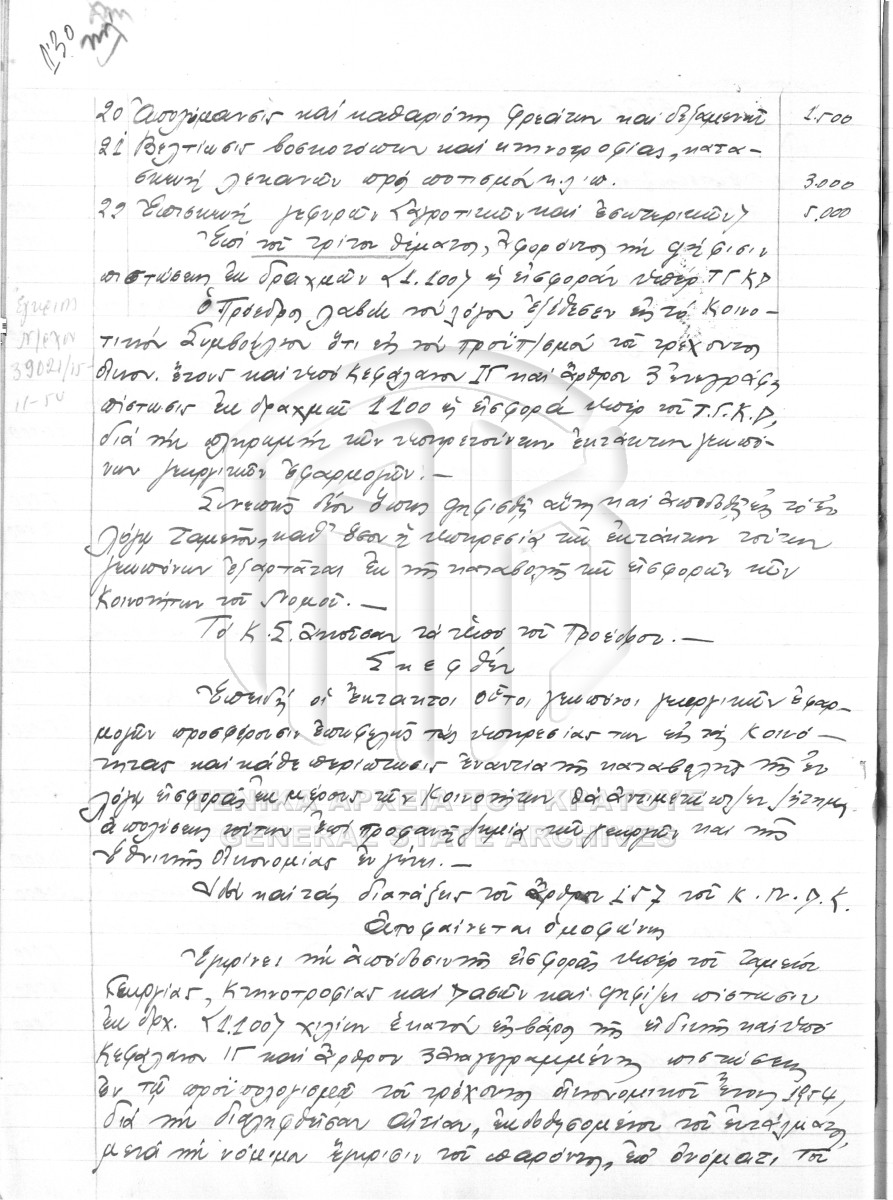 130
20 Ἀπολύμανσις καὶ καθαριότης φρεάτων καὶ δεξαμενῶν 1.500
21 Βελτίωσις βοσκοτόπων καὶ κτηνοτροφίας, κατα-
σκευὴ λεκανῶν πρὸς ποτισμὸν κ.λ.π. 3.000
22 Ἐπισκευὴ γεφυρῶν (ἀγροτικῶν καὶ ἐσωτερικῶν) 5.000
Ἐπὶ τοῦ τρίτου θέματος, ἀφορῶντος τὴν ψήφισιν
πιστώσεως ἐκ δραχμῶν (1.100) ὡς εἰσφορὰν ὑπὲρ Τ.Γ.Κ.Δ
Ὁ Πρόεδρος λαβὼν τὸν λόγον ἐξέθεσεν εἰς τὸ Κοινο-
τικὸν Συμβούλιον ὅτι εἰς τὸν προϋπ/σμὸν τοῦ τρέχοντος
οἰκον. ἔτους καὶ ὑπὸ Κεφάλαιον ΙΓ καὶ ἄρθρον 3 ἐνεγράφη
πίστωσις ἐκ δραχμῶν 1100 ὡς εἰσφορὰ ὑπὲρ τοῦ Τ.Γ.Κ.Δ,
διὰ τὴν πληρωμὴν τῶν ὑπηρετούντων ἐκτάκτων γεωπό-
νων γεωργικῶν ἐφαρμογῶν.—
Συνεπῶς δέον ὅπως ψηφισθῇ αὕτη καὶ ἀποδοθῇ εἰς τὸ ἐν
λόγῳ Ταμεῖον, καθ' ὅσον ἡ ὑπηρεσία τῶν ἐκτάκτων τούτων
γεωπόνων ἐξαρτᾶται ἐκ τῆς καταβολῆς τῶν εἰσφορῶν τῶν
Κοινοτήτων τοῦ Νομοῦ.—
Τὸ Κ.Σ. ἀκοῦσαν τὰ ὑπὸ τοῦ Προέδρου.—
Σκεφθὲν
Ἐπειδὴ οἱ ἔκτακτοι οὗτοι γεωπόνοι γεωργικῶν ἐφαρ-
μογῶν προσφέρουσιν ἐπωφελῶς τὰς ὑπηρεσίας των εἰς τὰς Κοινό-
τητας καὶ κάθε περίπτωσις ἐναντία τῆς καταβολῆς τῆς ἐν
λόγῳ εἰσφορᾶς ἐκ μέρους τῶν Κοινοτήτων θὰ ἀντιμετώπιζεν ζήτημα
ἀπολύσεως τούτων ἐπὶ προφανῇ ζημίᾳ τῶν γεωργῶν καὶ τῆς
Ἐθνικῆς Οἰκονομίας ἐν γένει.—
Ἰδὸν καὶ τὰς διατάξεις τοῦ ἄρθρου 157 τοῦ Κ.Ν.Δ.Κ.
Ἀποφαίνεται ὁμοφώνως
Ἐγκρίνει τὴν ἀπόδοσιν τῆς εἰσφορᾶς ὑπὲρ τοῦ Ταμείου
Γεωργίας, Κτηνοτροφίας καὶ Δασῶν καὶ ψηφίζει πίστωσιν
ἐκ δρχ. (1.100) χιλίων ἑκατὸν εἰς βάρος τῆς εἰδικῆς καὶ ὑπὸ
Κεφάλαιον ΙΓ καὶ ἄρθρον 3 ἀναγεγραμμένης πιστώσεως
ἐν τῷ προϋπολογισμῷ τοῦ τρέχοντος οἰκονομικοῦ ἔτους 1954,
διὰ τὴν διαληφθεῖσαν αἰτίαν, ἐκδοθησομένου τοῦ ἐντάλματος
μετὰ τὴν νόμιμον ἔγκρισιν τοῦ παρόντος, ἐπ' ὀνόματι τοῦ
39021/15-
11-54
ΓΕΝΙΚΑ ΑΡΧΕΙΑ ΤΟΥ ΚΡΑΤΟΥΣ
GENERAL STATE ARCHIVES